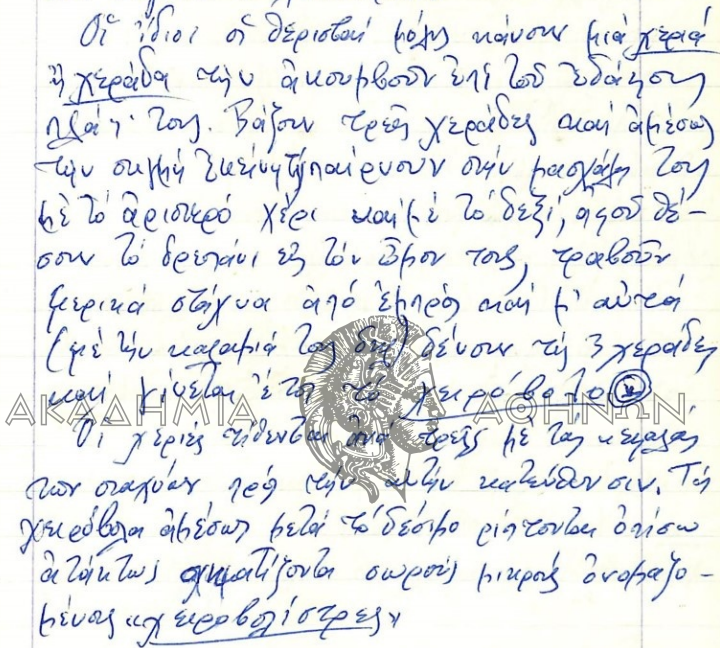 Οἱ ἴδιοι οἱ θερισταί μόλις κάνουν μιά χεριά
ἤ χεράδα τήν ἀκουμβοῦν ἐπί τοῦ ἐδάφους
πλάϊ τους. Βάζουν τρεῖς χεράδες καί ἀμέσως
τήν στιγμή ἐκείνη τίς παίρνουν στήν μασχάλη τους
μέ τό ἀριστερό χέρι καί μέ τό δεξί, ἀφοῦ θέ-
σουν τό δρεπάνι εἰς τόν ὦμον τους, τραβοῦν
μερικά στάχυα ἀπό ἐμπρός καί μ' αὐτά
(μέ τήν καλαμιά τους δηλ) δένουν τίς 3 χεράδες
καί γίνεται ἔτσι τό χειρόβολο
ΑΚΑΔΗΜΙΑ ΑΘΗΝΩΝ
Οἱ χεριές τίθενται ἀνά τρεῖς μέ τάς κεφαλάς
τῶν σταχύων πρός τήν αὐτήν κατεύθυνσιν. Τά
χειρόβολα ἀμέσως μετά τό δέσιμο ρίπτονται ὀπίσω
ἀτάκτως σχηματίζοντα σωρούς μικρούς ὀνομαζο-
μένους «χειροβολίστρες»